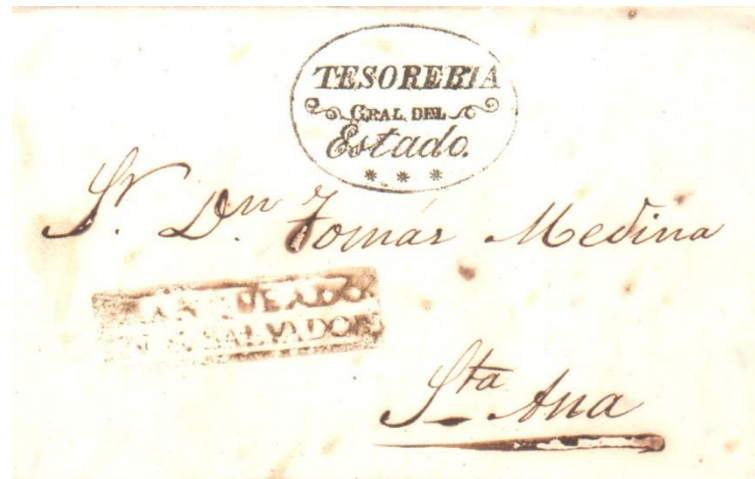 TESORERIA
GRAL DEL
Estado.
* * *
Sr. Dn. Tomás Medina
FRANQUEADO.
EN S. SALVADOR.
Sta Ana